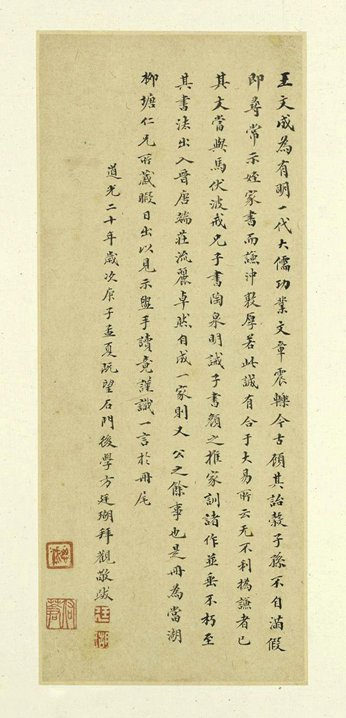 王文成為有明一代大儒功業文章震轢今古顧其詒穀子孫不自滿假
即尋常示姪家書而謙沖敦厚若此誠有合于大易所云无不利撝謙者已
其文當與馬伏波戒兄子書陶泉明誡子書顏之推家訓諸作並垂不朽至
其書法出入晉唐端莊流麗卓然自成一家則又 公之餘事也是冊為當湖
柳塘仁兄所藏暇日出以見示盥手讀竟謹識一言於冊尾
道光二十年歲次庚子孟夏既望石門後學方廷瑚拜觀敬跋
廷瑚